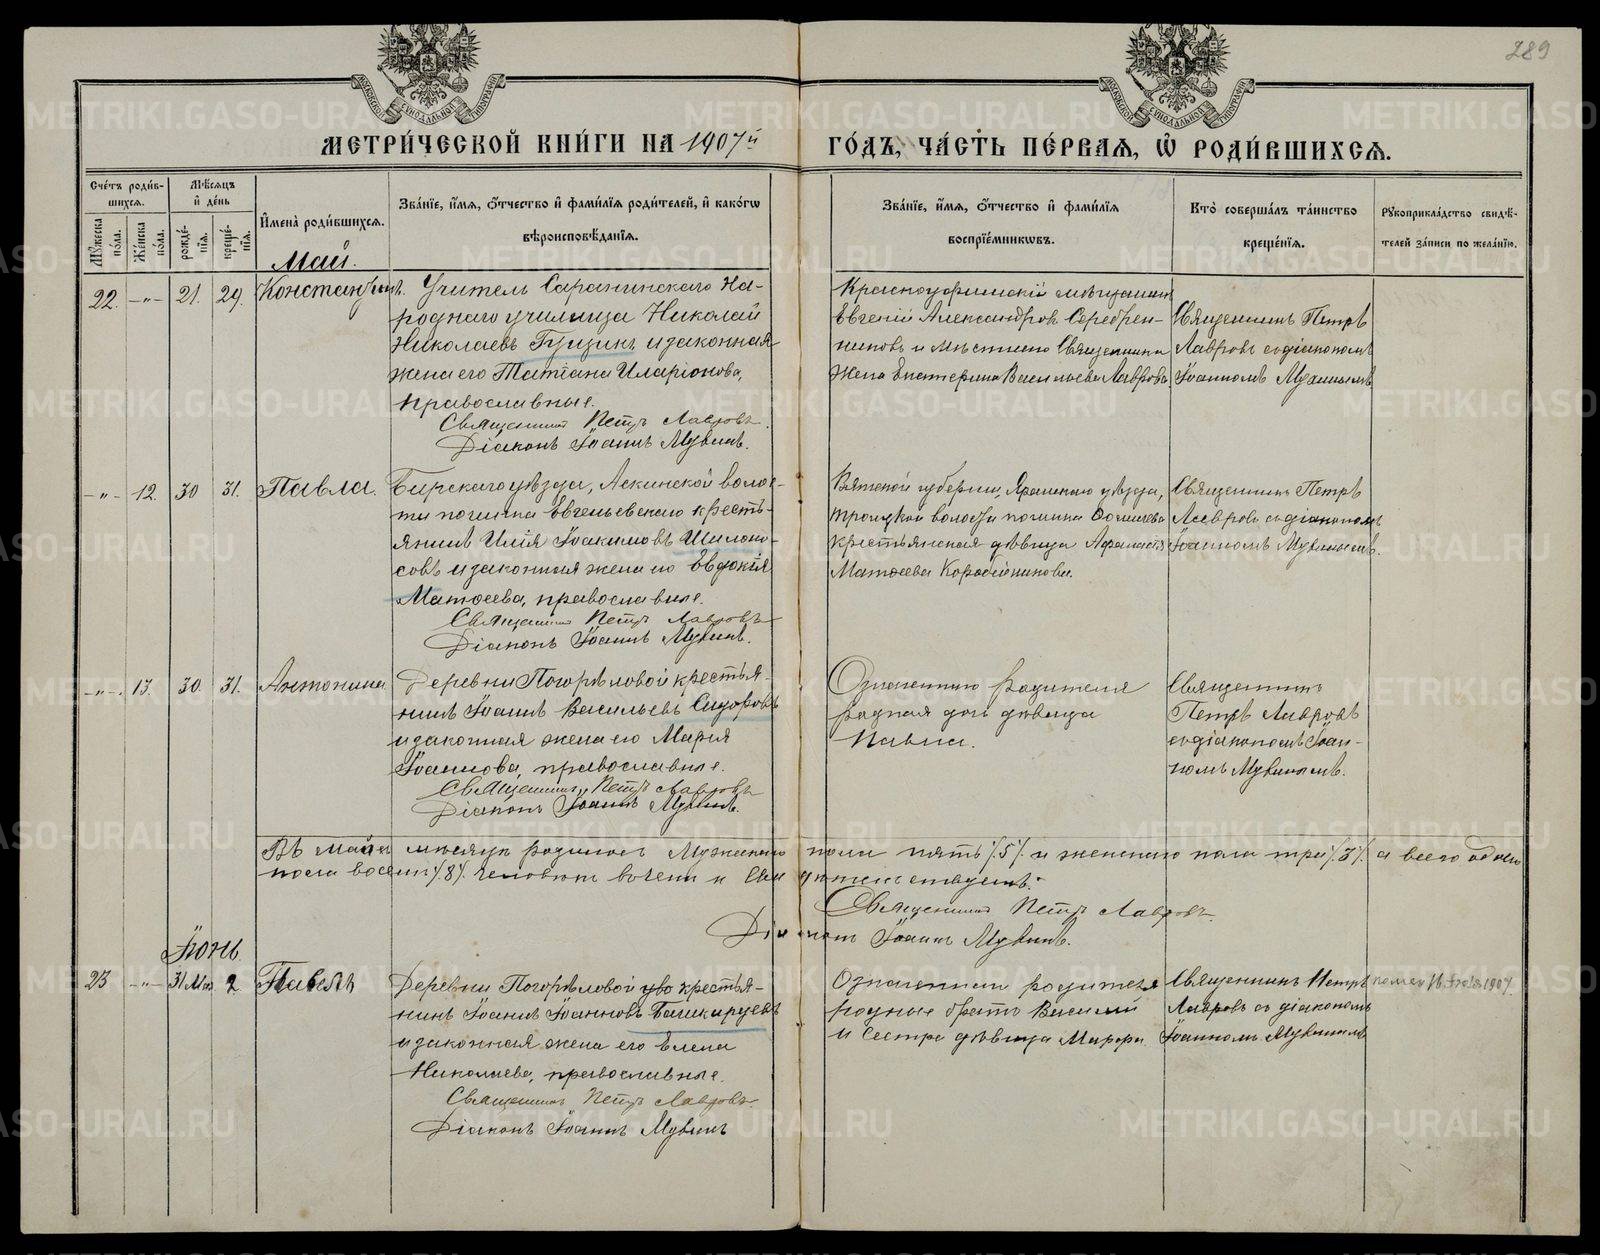 289
МЕТРИ́ЧЕСКОЙ КНИ́ГИ НА 1907й ГО́ДЪ, ЧА́СТЬ ПЕ́РВАЯ, Ѡ҆ РОДИ́ВШИХСЯ.
Сче́тъ роди́в-
шихся.
Мꙋ́жеска по́ла.
Же́нска по́ла.
Мѣ́сяцъ
и҆ де́нь
рожде́-
нїя.
креще́-
нїя.
И҆мена̀ роди́вшихся.
Зва́нїе, и҆́мя, ѻ҆́тчество и҆ фами́лїя роди́телей, и҆ како́гѡ
вѣроисповѣ́данїя.
Зва́нїе, и҆́мя, ѻ҆́тчество и҆ фами́лїя
воспрїе́мниковъ.
Кто̀ соверша́лъ та́инство
креще́нїя.
Рꙋкоприкла́дство свидѣ́-
телей за́писи по жела́нїю.
Май.
22. -"- 21. 29. Константинъ.
Учитель Саранинскаго На-
роднаго училища Николай
Николаевъ Гущинъ и законная
жена его Татіана Иларіонова,
православные.
Священникъ Петръ Лавровъ.
Діаконъ Іоаннъ Мухинъ.
Красноуфимскій мѣщанинъ
Евгеній Александровъ Серебрен-
никовъ и мѣстнаго Священника
жена Екатерина Васильева Лаврова
Священникъ Петръ
Лавровъ съ діакономъ
Іоанномъ Мухинымъ
-"- 12. 30 31. Павла.
Бирскаго уѣзда, Аскинской волос-
ти починка Евгеньевскаго кресть-
янинъ Илія Іоакимовъ Шилоно-
совъ и законная жена его Евдокія
Матѳеева, православные.
Священникъ Петръ Лавровъ
Діаконъ Іоаннъ Мухинъ.
Вятской губерніи, Яранскаго уѣзда,
Троицкой волости починка
крестьянская дѣвица
Матѳеева
Священникъ Петръ
Лавровъ съ діакономъ
Іоанномъ Мухинымъ.
-"- 13. 30. 31. Антонина
Деревни Погорѣловой крестья-
нинъ Іоаннъ Васильевъ Сидоровъ
и законная жена его Марія
Іоаннова, православные.
Священникъ Петръ Лавровъ
Діаконъ Іоаннъ Мухинъ.
Означеннаго родителя
родная дочь дѣвица
Павла.
Священникъ
Петръ Лавровъ
съ діакономъ Іоан-
номъ Мухинымъ.
Въ маѣ мѣсяцѣ родилось мужескаго пола пять /5/. и женскаго пола три /3/. а всего обоего
пола восемь /8/. человѣкъ въ чемъ и свидѣтельствуемъ:
Священникъ Петръ Лавровъ.
Діаконъ Іоаннъ Мухинъ.
Іюнь.
23 -"- 31 Мая 2 Павелъ
Деревни Погорѣловой крестья-
нинъ Іоаннъ Іоанновъ Башкирцевъ
и законная жена его Елена
Николаева, православные.
Священникъ Петръ Лавровъ.
Діаконъ Іоаннъ Мухинъ
Означеннаго родителя
родные братъ Василій
и сестра дѣвица Марѳа.
Священникъ Петръ
Лавровъ съ діакономъ
Іоанномъ Мухинымъ
1907.
METRIKI.GASO-URAL.RU